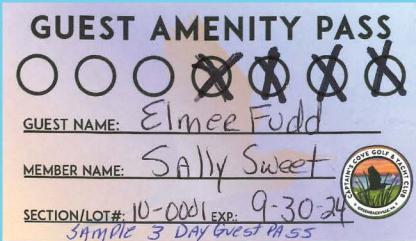 GUEST AMENITY PASS
GUEST NAME: Elmer Fudd
MEMBER NAME: Sally Sweet
SECTION/LOT#: 10-0001 EXP: 9-30-24
SAMPLE 3 DAY Guest PASS
CAPTAIN'S COVE GOLF & YACHT CLUB
GREENBACKVILLE, VA